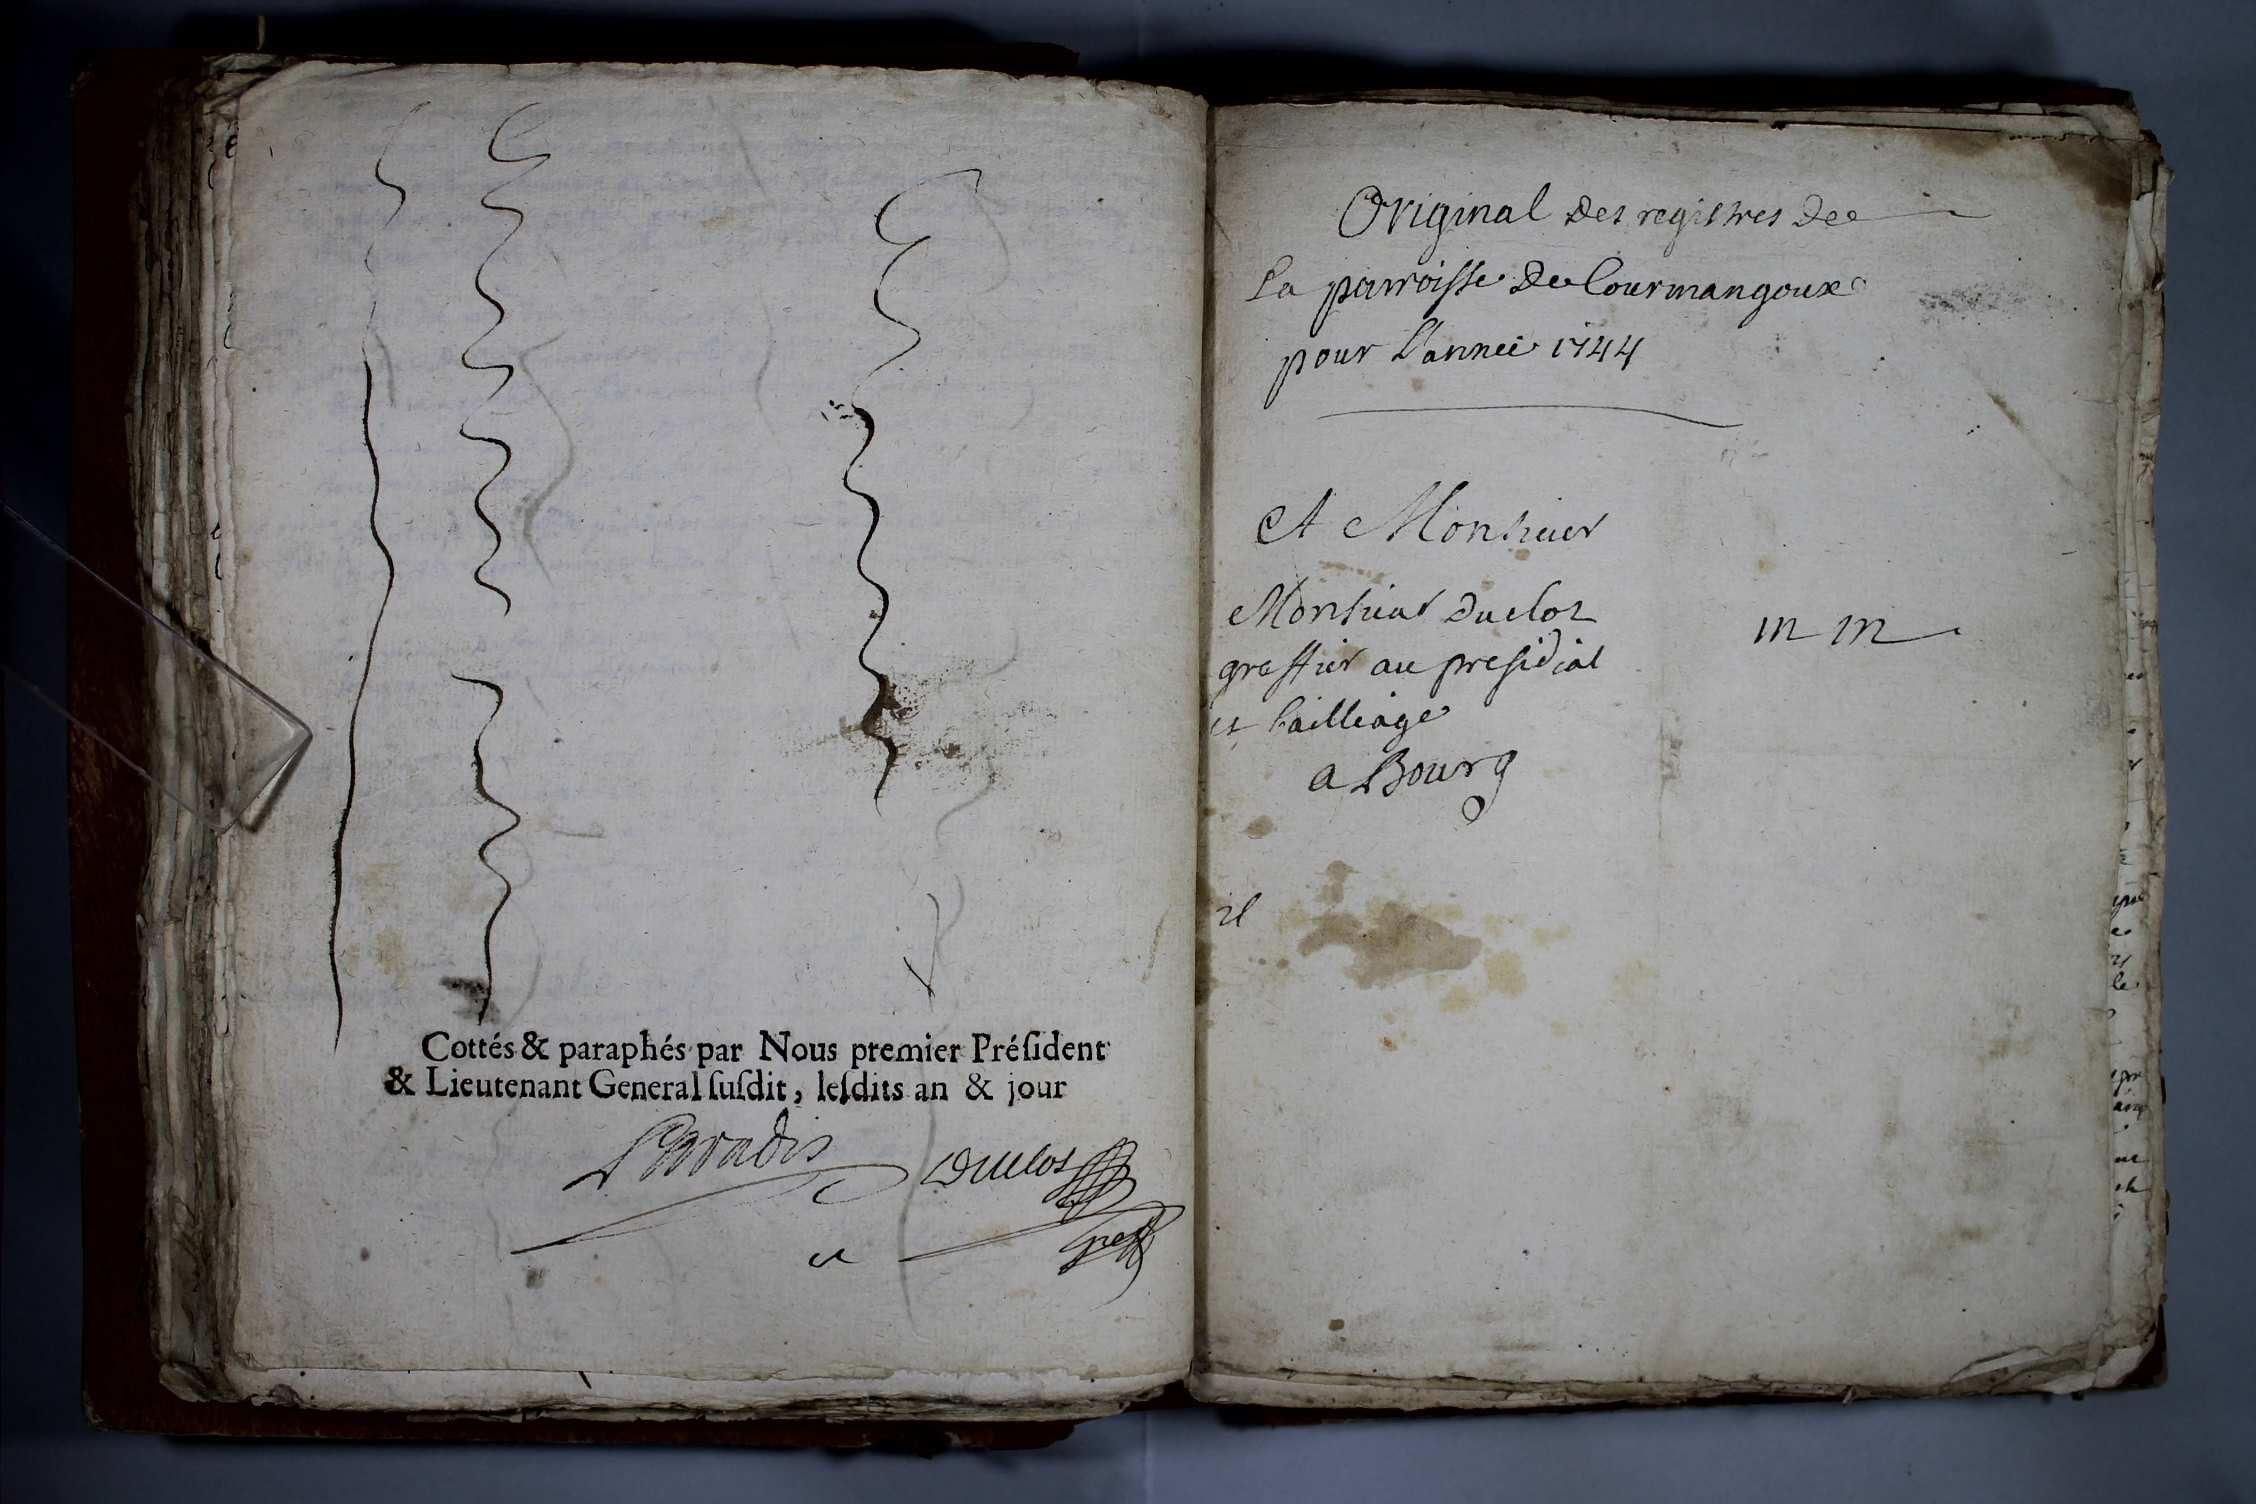 Cottés & paraphés par Nous premier Préſident
& Lieutenant General ſuſdit, leſdits an & jour
Paradis Duclos
greff
Original des registres de
la parroisse de Courmangoux
pour L'année 1744
A Monsieur
Monsieur Duclos
greffier au presidial
et bailliage
a Bourg